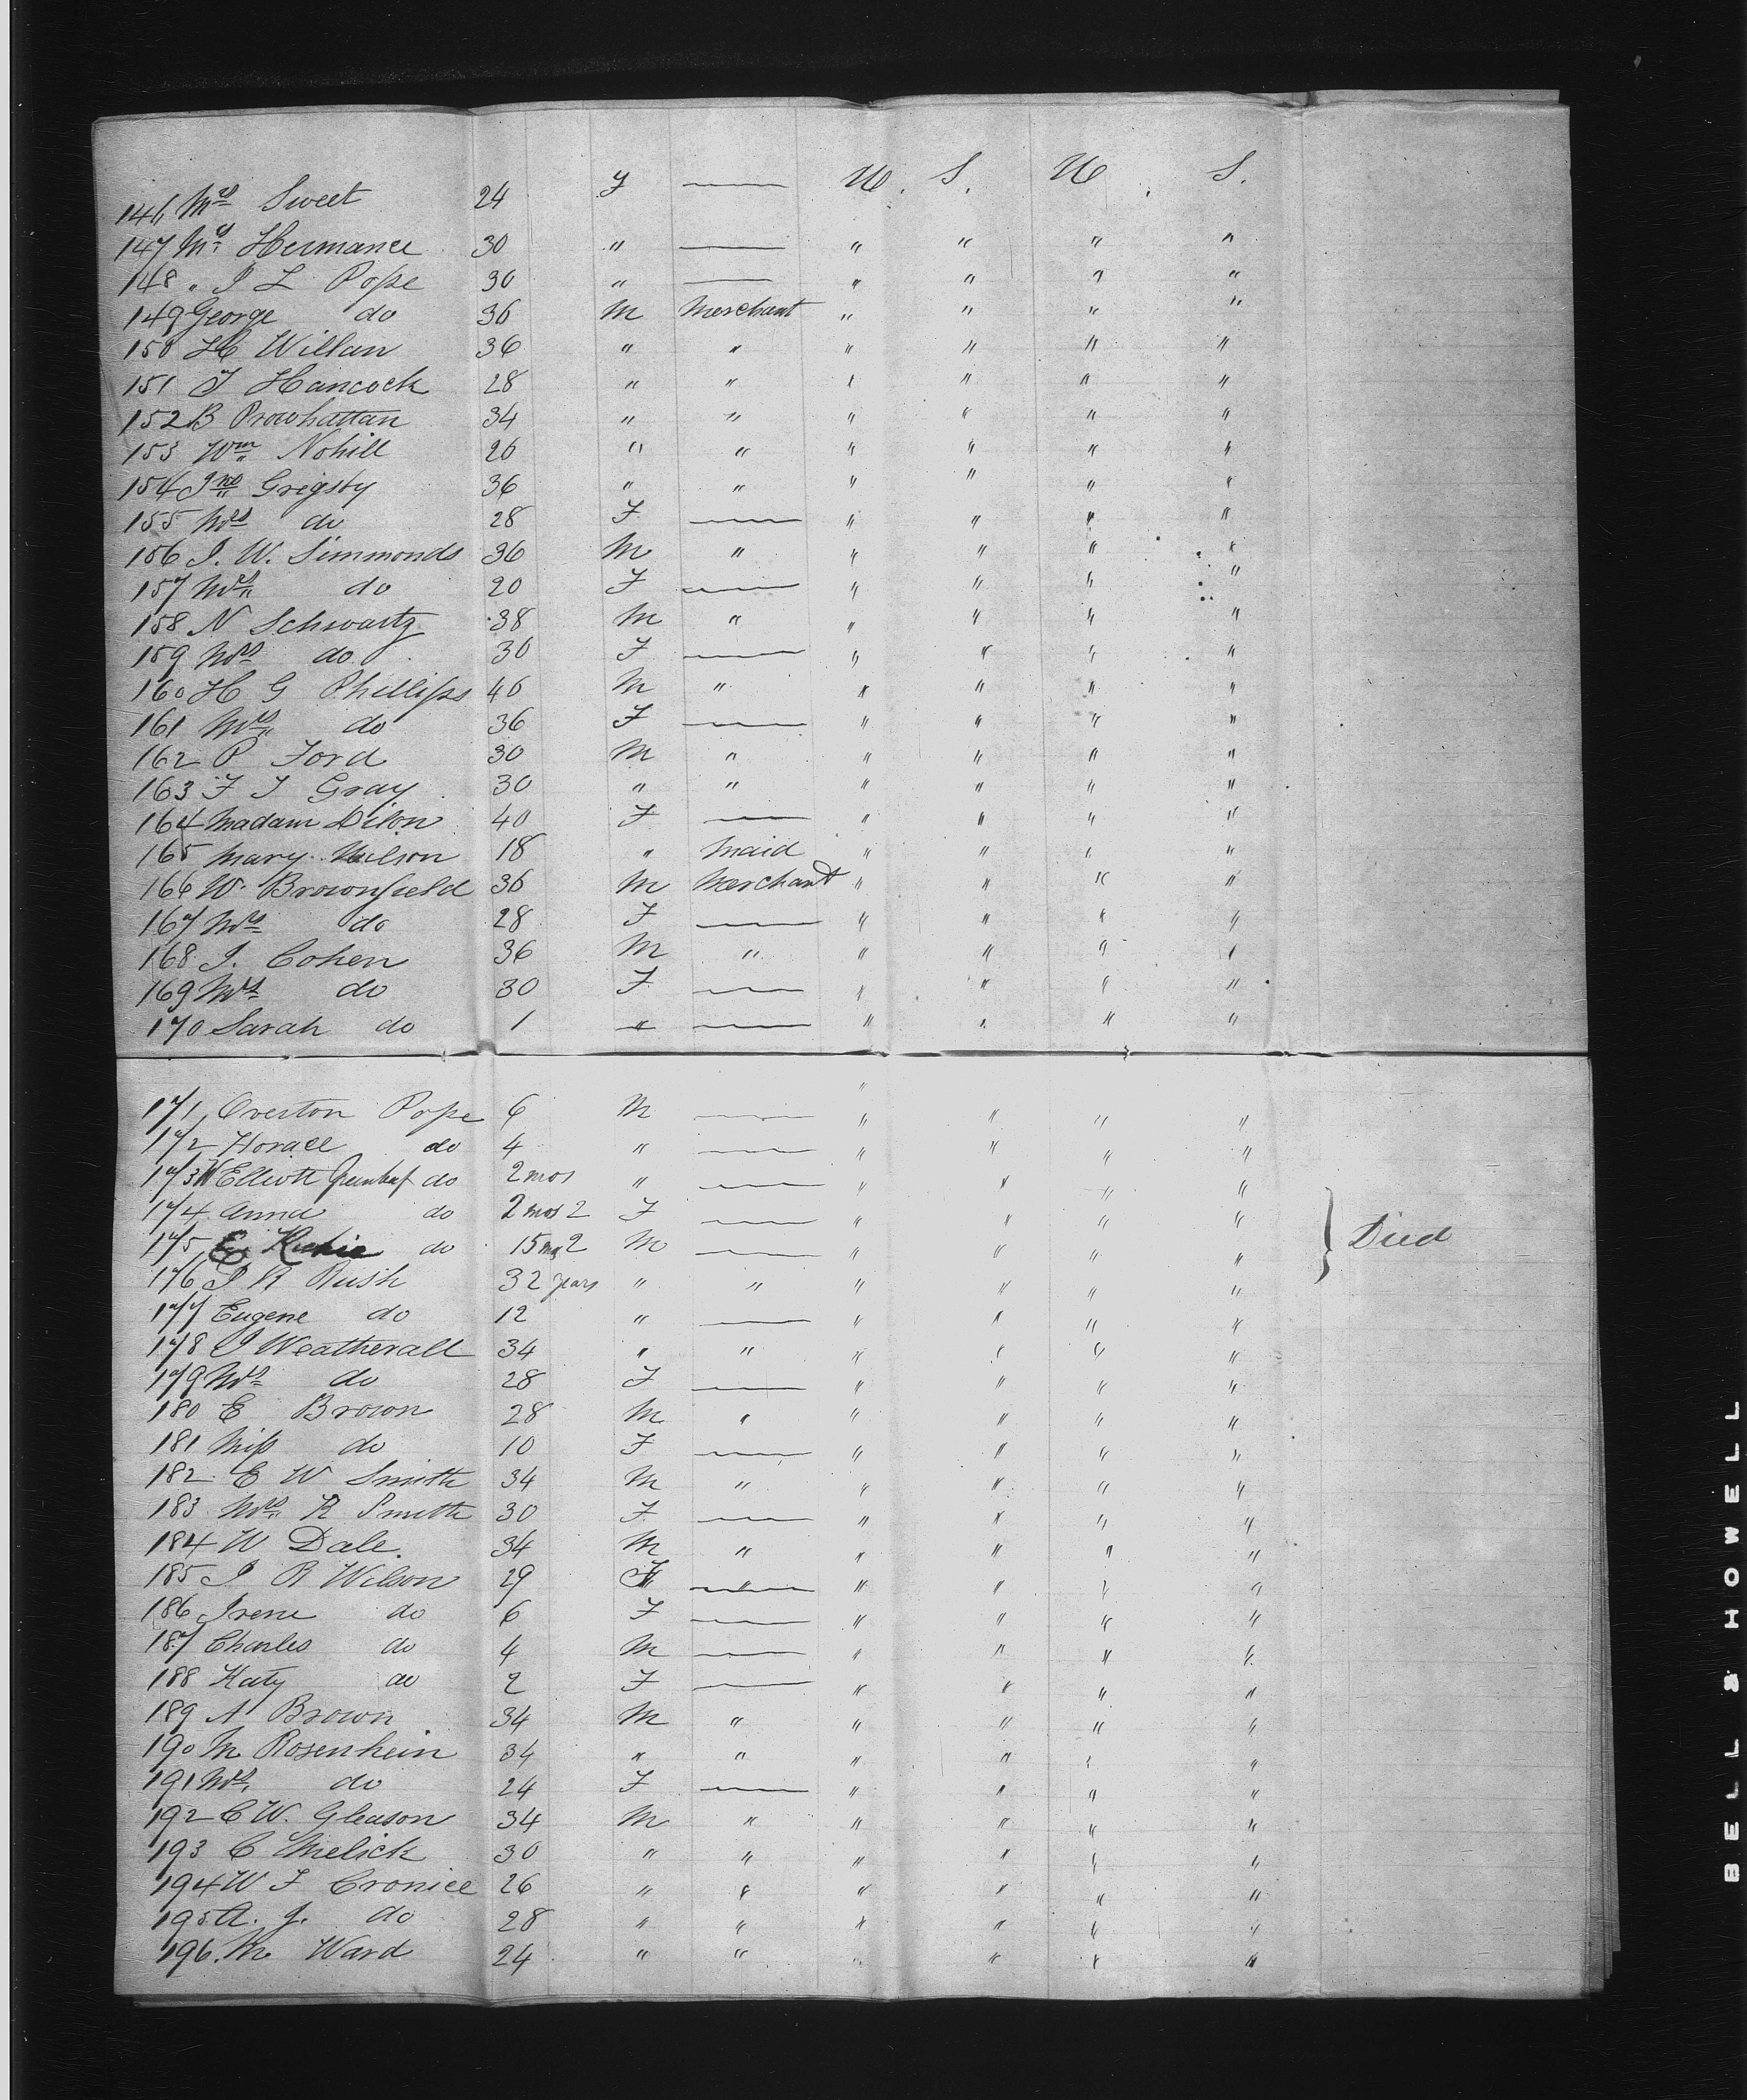 146 Mrs Sweet 24 F —— U. S. U. S.
147 Mrs Hermance 30 " —— " " " "
148 " J L Pope 30 " —— " " " "
149 George do 36 M Merchant " " " "
150 H Willan 36 " " " " " "
151 J Hancock 28 " " " " " "
152 B Prowhattan 34 " " " " " "
153 Wm Nohill 26 " " " " " "
154 Jno Grigsby 36 " " " " " "
155 Mrs do 28 F —— " " " "
156 J. W. Simmonds 36 M " " " " "
157 Mrs do 20 F —— " " " "
158 N Schwartz 38 M " " " " "
159 Mrs do 30 F —— " " " "
160 H G Phillips 46 M " " " " "
161 Mrs do 36 F —— " " " "
162 P Ford 30 M " " " " "
163 F J Gray 30 " " " " " "
164 Madam Dilon 40 F —— " " " "
165 Mary Wilson 18 " Maid " " " "
166 W. Brownfield 36 M Merchant " " " "
167 Mrs do 28 F —— " " " "
168 J. Cohen 36 M " " " " "
169 Mrs do 30 F —— " " " "
170 Sarah do 1 " —— " " " "
171 Overton Pope 6 M —— " " " "
172 Horace do 4 " —— " " " "
173 W Elliott Greenleaf do 2 mos " —— " " " "
174 Anna do 2 mos 2 F —— " " " "
175 do 15 mos 2 M —— " " " " } Died
176 J R Rush 32 years " " " " " "
177 Eugene do 12 " —— " " " "
178 J Weatherall 34 " " " " " "
179 Mrs do 28 F —— " " " "
180 E Brown 28 M " " " " "
181 Miss do 10 F —— " " " "
182 E W Smith 34 M " " " " "
183 Mrs R Smith 30 F —— " " " "
184 W Dale. 34 M " " " " "
185 J R Wilson 29 F —— " " " "
186 Irene do 6 F —— " " " "
187 Charles do 4 M —— " " " "
188 Katy do 2 F —— " " " "
189 A Brown 34 M " " " " "
190 M Rosenhein 34 " " " " " "
191 Mrs do 24 F —— " " " "
192 C W. Gleason 34 M " " " " "
193 C Melick 30 " " " " " "
194 W F Cronice 26 " " " " " "
195 A. J. do 28 " " " " " "
196 M Ward 24 " " " " " "
BELL & HOWELL